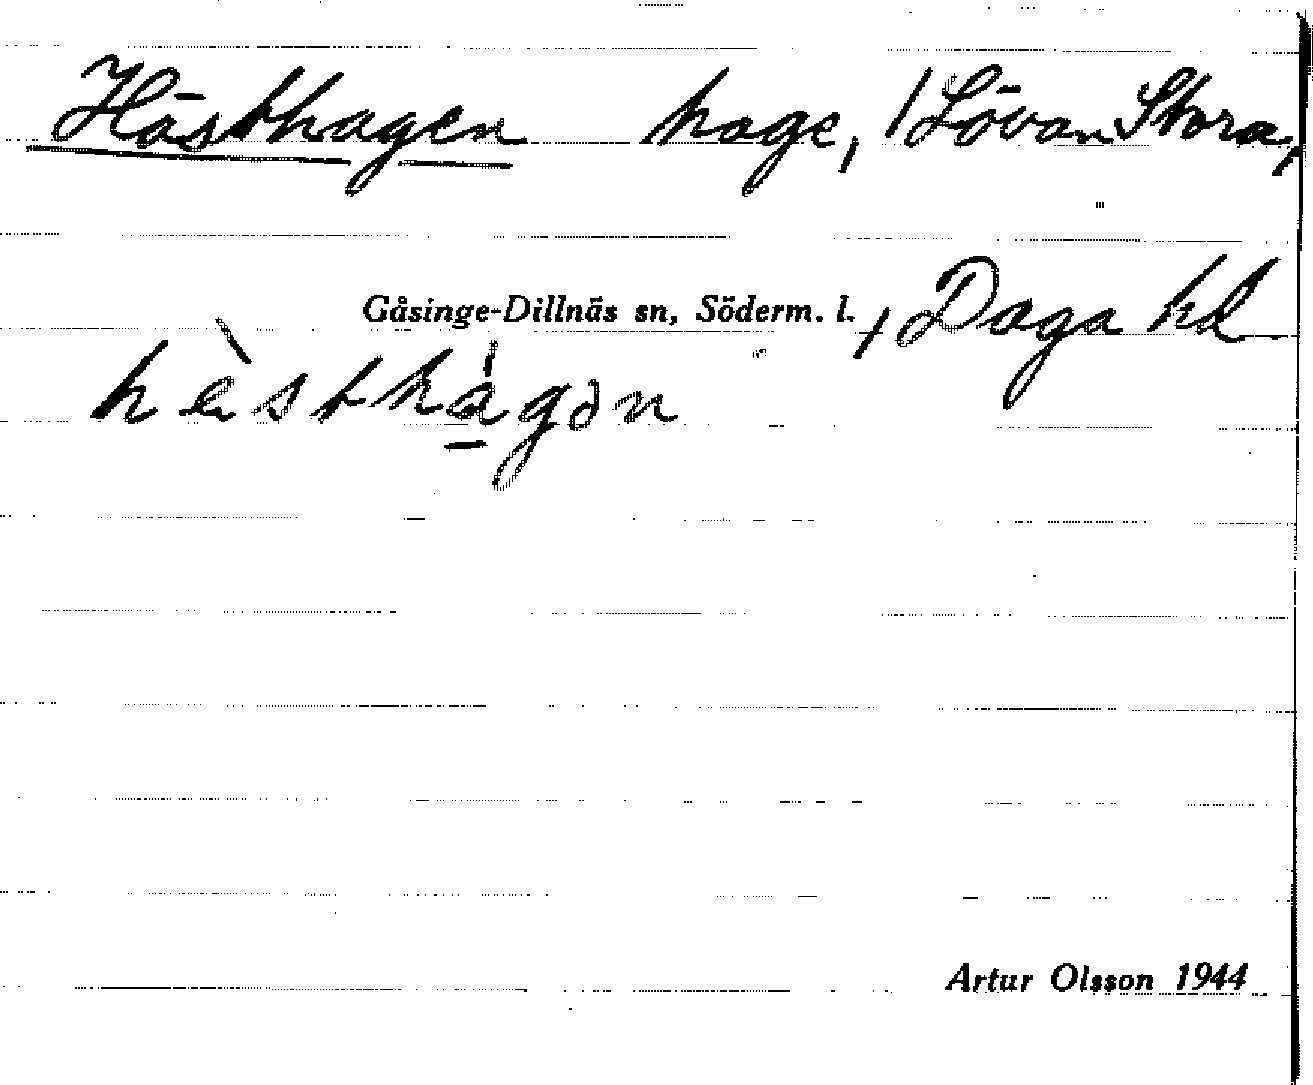 Hästhagen hage, /Lövan Stora,
Gåsinge-Dillnäs sn, Söderm. l., Daga hd
hèsthágən
Artur Olsson 1944